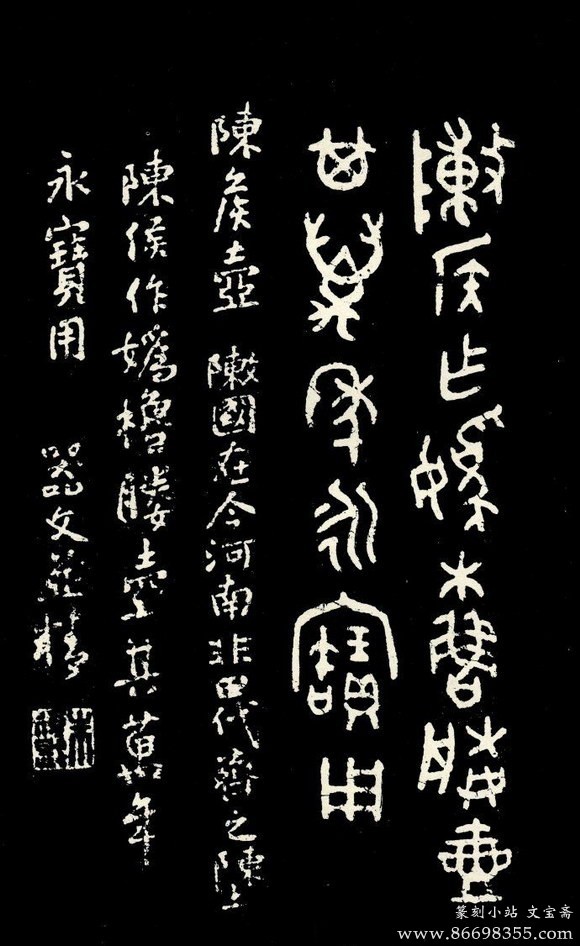 敶侯乍媯櫓媵壺
其萬年永寶用
陳侯壺 敶國在今河南非田代齊之陳
陳侯作媯櫓媵壺其萬年
永寶用 器文並精
篆刻小站 文宝斋
www.86698355.com